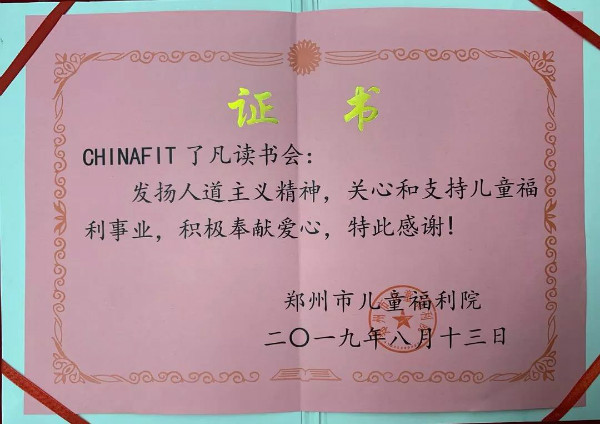 证 书
CHINAFIT 了凡读书会：
发扬人道主义精神，关心和支持儿童福
利事业，积极奉献爱心，特此感谢！
郑州市儿童福利院
二〇一九年八月十三日